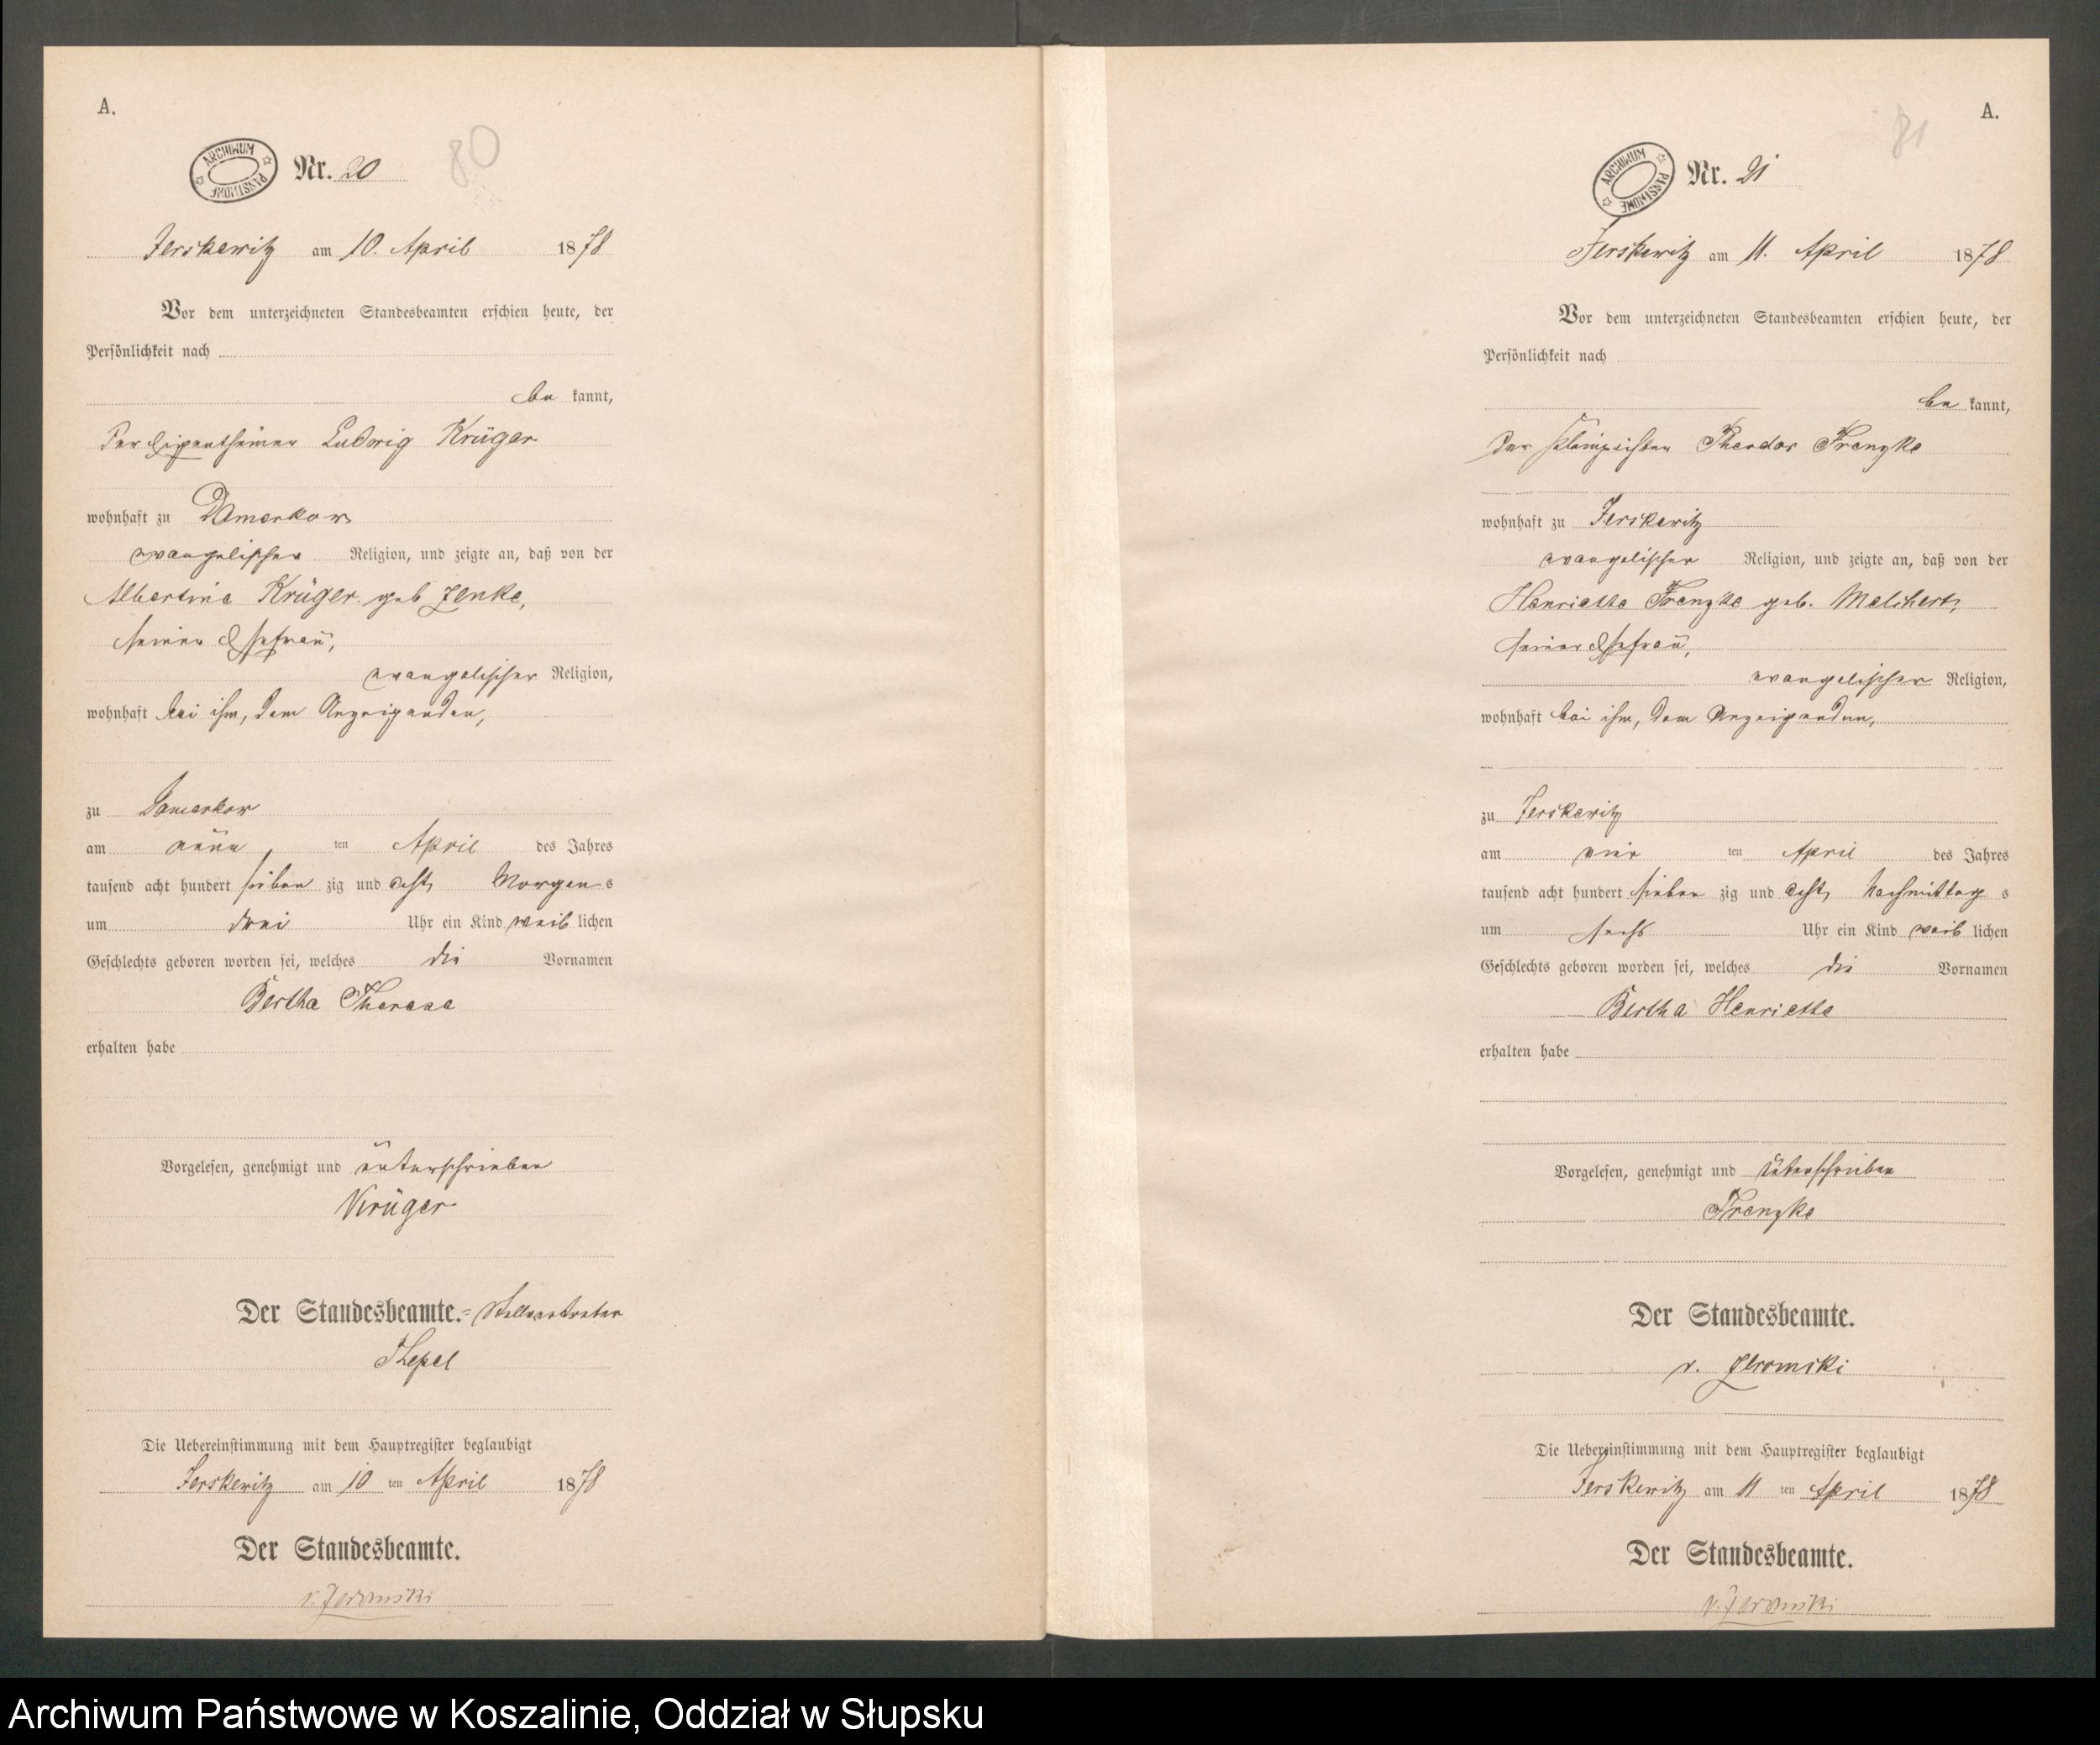 A.
ARCHIWUM PAŃSTWOWE
Nr. 20
80
Jerskewitz am 10. April 1878
Vor dem unterzeichneten Standesbeamten erschien heute, der
Persönlichkeit nach
be kannt,
der Eigenthümer Ludwig Krüger
wohnhaft zu Damerkow
evangelischer Religion, und zeigte an, daß von der
Albertine Krüger geb Zenke,
seiner Ehefrau,
evangelischer Religion,
wohnhaft bei ihm, dem Anzeigenden,
zu Damerkow
am neun ten April des Jahres
tausend acht hundert sieben zig und acht, Morgen s
um drei Uhr ein Kind weib lichen
Geschlechts geboren worden sei, welches die Vornamen
Bertha Therese
erhalten habe
Vorgelesen, genehmigt und unterschrieben
Krüger
Der Standesbeamte.= Stellvertreter
Die Uebereinstimmung mit dem Hauptregister beglaubigt
Jerskewitz am 10 ten April 1878
Der Standesbeamte.
A.
ARCHIWUM PAŃSTWOWE
Nr. 21
81
Jerskewitz am 11. April 1878
Vor dem unterzeichneten Standesbeamten erschien heute, der
Persönlichkeit nach
be kannt,
der Theodor Frenzke
wohnhaft zu Jerskewitz
evangelischer Religion, und zeigte an, daß von der
Henriette Frenzke geb. Melchert,
seiner Ehefrau,
evangelischer Religion,
wohnhaft bei ihm, dem Anzeigenden,
zu Jerskewitz
am vier ten April des Jahres
tausend acht hundert sieben zig und acht, Nachmittag s
um sechs Uhr ein Kind weib lichen
Geschlechts geboren worden sei, welches die Vornamen
Bertha Henriette
erhalten habe
Vorgelesen, genehmigt und
Frenzke
Der Standesbeamte.
Die Uebereinstimmung mit dem Hauptregister beglaubigt
Jerskewitz am 11 ten April 1878
Der Standesbeamte.
Archiwum Państwowe w Koszalinie, Oddział w Słupsku